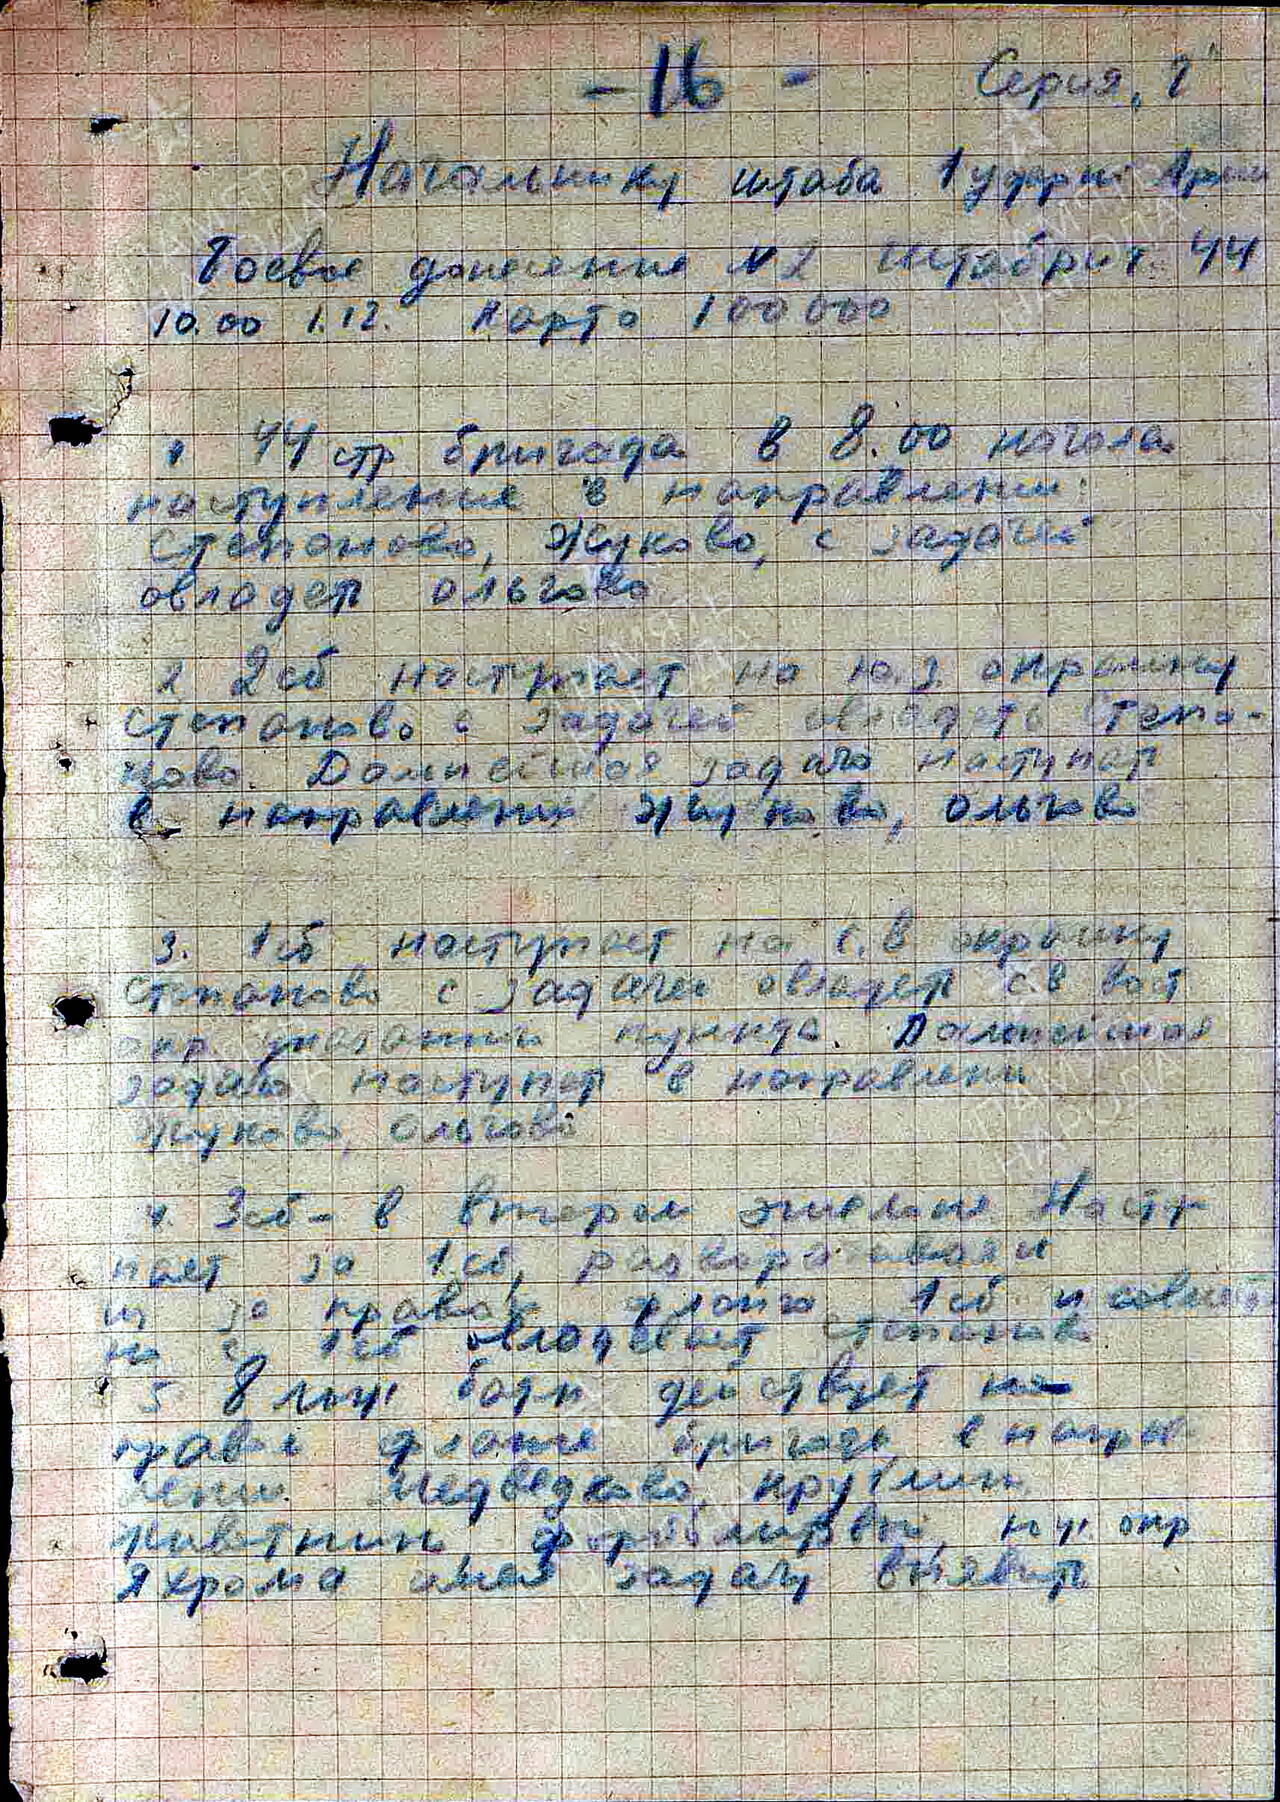 - 16 -
Серия.
Начальнику штаба 1 ударн Арми
Боевое донесение № 2 Штабриг 44
10.00 1.12. Карта 100000
1 44 стр бригада в 8.00 начала
наступление в направлении:
Степаново, Жуково, с задачей
овладеть Ольгово
2 2сб наступает на ю.з. окраину
Степаново с задачей овладеть Степа-
ново. Дальнейшая задача наступат
в направлении Жуково, Ольгово
3. 1сб наступает на с.в окраину
Степаново с задачей овладеть с.в вост
окр. указанный пункта. Дальнейшая
задача наступат в направлени
Жуково, Ольгово
4. 3сб - в втором эшелоне Насту
пает за 1сб, разворачиваяся
из за правого фланга 1сб и совмест
но с 1сб овладевает Степаново
5 8 лыж батн действует на
правом фланге бригады в направ
лении Медведково,
окр
Яхрома имея задачу выявить